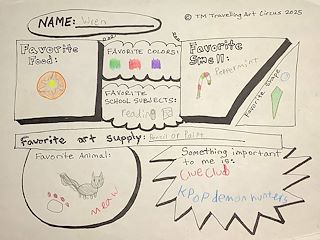 NAME: Wren
© TM Travelling Art Circus 2025
Favorite Food:
FAVORITE COLORS:
Favorite Smell:
Peppermint
FAVORITE
SCHOOL SUBJECTS:
reading
Favorite Shape
Favorite art supply: Pencil or Paint
Favorite Animal:
meow
Something important
to me is:
Clue Club
KPOP demon hunters